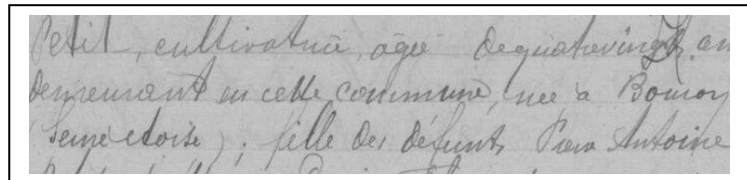 Petit, cultivatrice, âgée de quatrevingt an
demeurant en cette commune, née à
(Seine et oise); fille des défunts Pierre Antoine